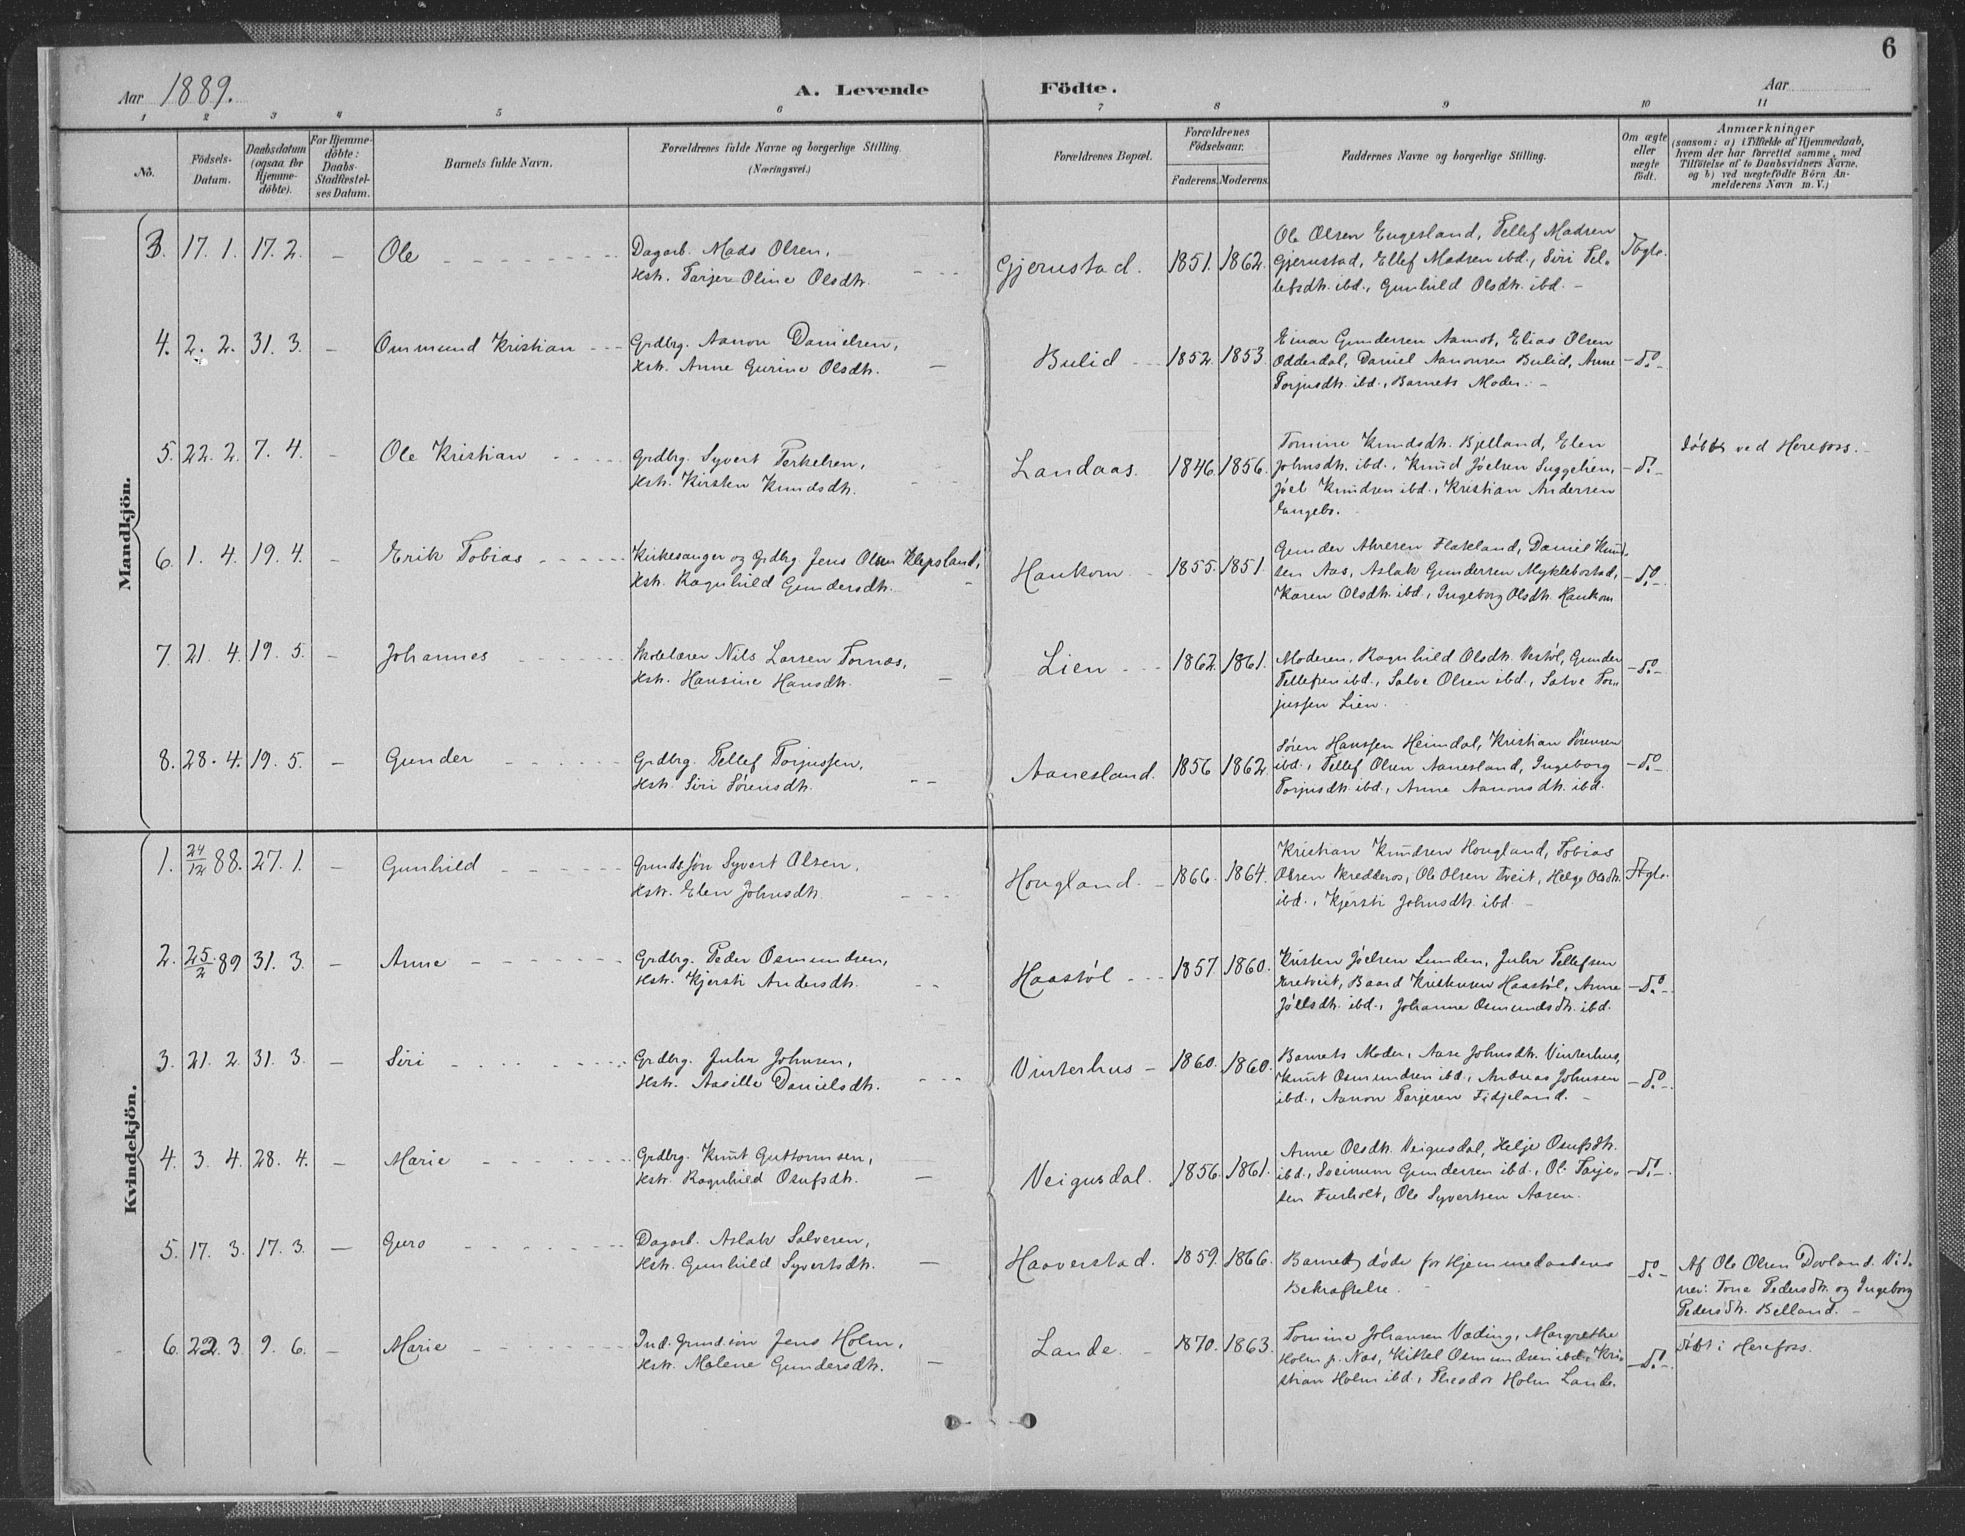 6
Aar 1889. A. Levende Födte. Aar
1 2 3 4 5 6 7 8 9 10 11
No. Födsels-Datum. Daabsdatum (ogsaa for Hjemmedöbte). For Hjemmedöbte: Daabs-Stadfæstelses Datum. Barnets fulde Navn. Forældrenes fulde Navne og borgerlige Stilling. (Næringsvei.) Forældrenes Bopæl. Forældrenes Födselsaar. Faderens. Moderens. Faddernes Navne og borgerlige Stilling. Om ægte eller uægte födt. Anmærkninger (saasom: a) i Tilfælde af Hjemmedaab, hvem der har forrettet samme, med Tilföielse af to Daabsvidners Navne, og b) ved uægtefödte Börn Anmelderens Navn m. V.)
Mandkjön.
3. 17. 1. 17. 2. – Ole Dagarb. Mads Olsen, Gjerustad. 1851. 1862. Ole Olsen Engesland, Tellef Madsen Ægte.
Hstr. Tarjer Oline Olsdtr. Gjerustad, Ellef Madsen ibd., Siri Tel-
lefsdtr. ibd., Gunhild Olsdtr. ibd. –
4. 2. 2. 31. 3. – Ommund Kristian Grdbrg. Aanon Danielsen, Bulid 1852. 1853. Einar Gundersen Aamot, Elias Olsen – do –
Hstr. Anne Gurine Olsdtr. – Odderdal, Daniel Aanonsen Bulid, Anne
Torjusdtr. ibd., Barnets Moder. –
5. 22. 2. 7. 4. – Ole Kristian Grdbrg. Syvert Terkelsen, Landaas. 1846. 1856. Tomine Knudsdtr. Bjelland, Elen – do – Döbt ved Herefoss. –
Hstr. Kirsten Knudsdtr. Johnsdtr. ibd., Knud Jöelsen Suggelien,
Jöel Knudsen ibd., Kristian Andersen
Engebo.
6. 1. 4. 19. 4. – Erik Tobias Kirkesanger og Grdbrg Jens Olsen Klepsland, Haukom 1855. 1851. Gunder Ahlesen Flakland, Daniel Knud- – do –
Hstr. Ragnhild Gundersdtr. – sen Aas, Aslak Gundersen Myklebostad,
Karen Olsdtr. ibd., Ingeborg Olsdtr. Haukom
7. 21. 4. 19. 5. – Johannes Skolelærer Nils Larsen Tornæs, Lien 1862. 1861. Moderen, Ragnhild Olsdtr. Vestöl, Gunder – do –
Hstr. Hansine Hansdtr. – Tellefsen ibd., Salve Olsen ibd., Salve Tor-
jussen Lien.
8. 28. 4. 19. 5. – Gunder Grdbrg. Tellef Torjussen, Aanesland. 1856 1862 Sören Hanssen Heimdal, Kristian Sörensen – do –
Hstr. Siri Sörensdtr. – – ibd., Tellef Olsen Aanesland, Ingeborg
Torjusdtr. ibd., Anne Aanonsdtr. ibd.
Kvindekjön.
1. 24/12 88. 27. 1. – Gunhild Grunds.sön Syvert Olsen, Hougland. 1866. 1864. Kristian Knudsen Hougland, Tobias Ægte.
Hstr. Elen Johnsdtr. Olsen Skredderos, Ole Olsen Tveit, Helge Olsdtr.
ibd., Kjersti Johnsdtr. ibd. –
2. 25/2 89 31. 3. – Anne Grdbrg. Peder Osmundsen, Haastöl 1857. 1860. Kristen Jöelsen Lunden, Juhr Tellefsen – do –
Hstr. Kjersti Andersdtr. Eretveit, Baard Kristensen Haastöl, Anne
Jöelsdtr. ibd., Johanne Osmundsdtr. ibd.
3. 21. 2. 31. 3. – Siri Grdbrg. Juhr Johnsen, Vinterhus – 1860. 1860. Barnets Moder, Aase Johnsdtr. Vinterhus, – do –
Hstr. Aasille Danielsdtr. Knut Osmundsen ibd., Andreas Johnsen
ibd., Aanon Tarjesen Fidjeland. –
4. 3. 4. 28. 4. – Marie Grdbrg. Knut Guttormsen, Veigusdal. 1856. 1861. Anne Olsdtr. Veigusdal, Helje Osufsdtr. – do –
Hstr. Ragnhild Osufsdtr. – ibd., Gundersen ibd., Ole Tarje-
sen Furholt, Ole Syvertsen Aasen.
5. 17. 3. 17. 3. – Guro Dagarb. Aslak Salvesen, Haaverstad. 1859. 1866. Barnet döde för Hjemmedaabens – do – Af Ole Olsen Dovland. Vid-
Hstr. Gunhild Syvertsdtr. – Bekræftelse. ner: Tone Pedersdtr. og Ingeborg
Pedersdtr. Belland. –
6. 22. 3 9. 6. – Marie Ind. Grundsön Jens Holm, Lande. – 1870. 1863. Tomine Johansen Væding, Margrethe – do – Döbt i Herefoss.
Hstr. Malene Gundersdtr. – Holm p. Næs, Kittel Osmundsen ibd., Kri-
stian Holm ibd., Theodor Holm Lande.